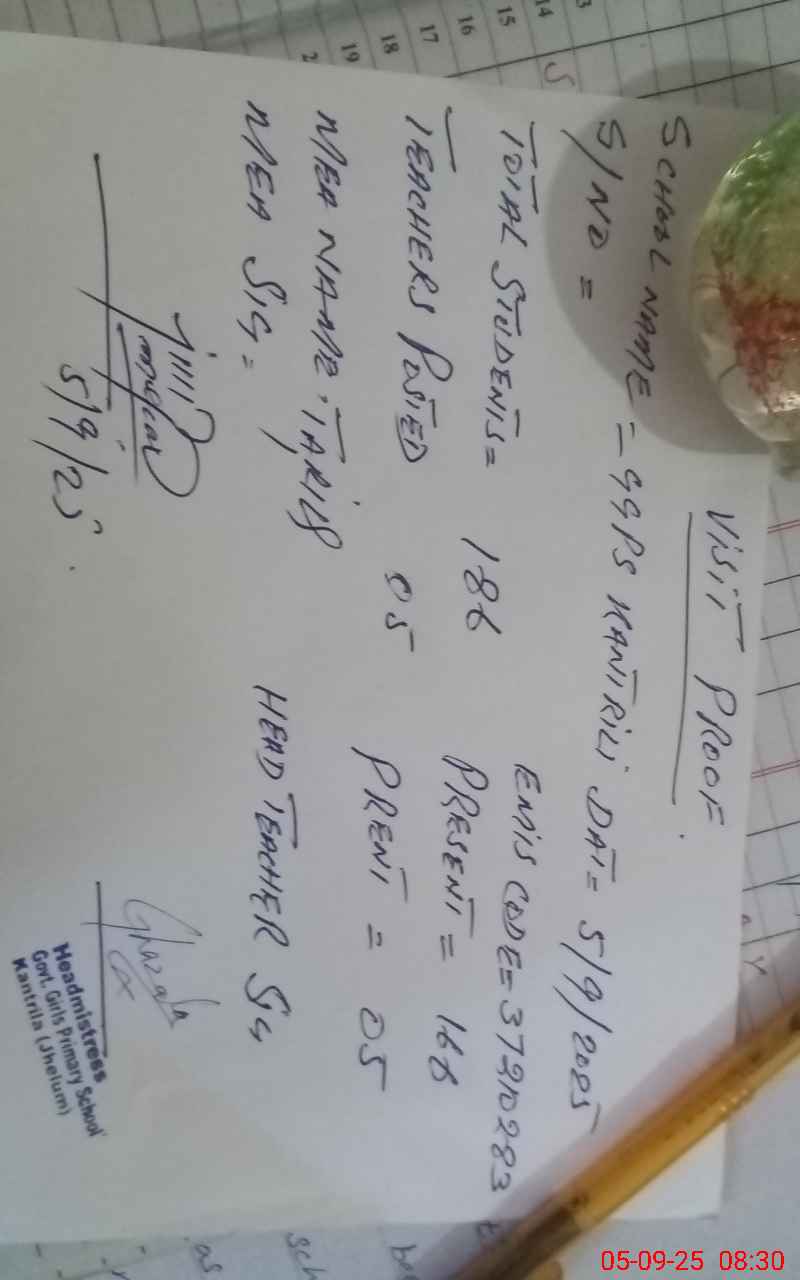 VISIT PROOF
SCHOOL NAME = GGPS KANTRILI DAT= 5/9/2025
S/NO =
EMIS CODE= 37210283
TOTAL STUDENTS= 186 PRESENT = 166
TEACHERS POSTED 05 PRENT = 05
MEA NAME: TARIQ
MEA SIG = HEAD TEACHER SIG
5/9/25
Ghazala
Headmistress
Govt. Girls Primary School
Kantrila (Jhelum)
14
15
16
17
18
19
05-09-25 08:30